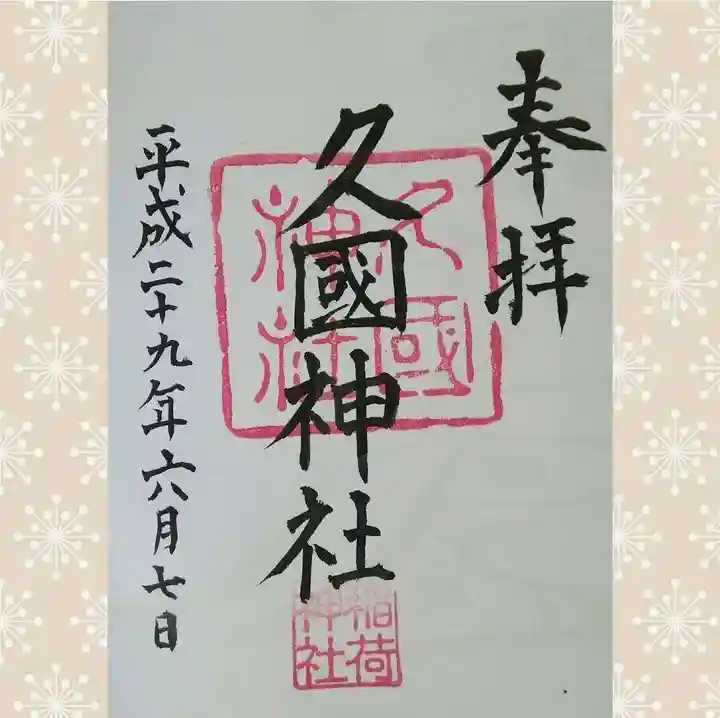 奉拝
久國神社
平成二十九年六月七日
久國神社
稲荷神社